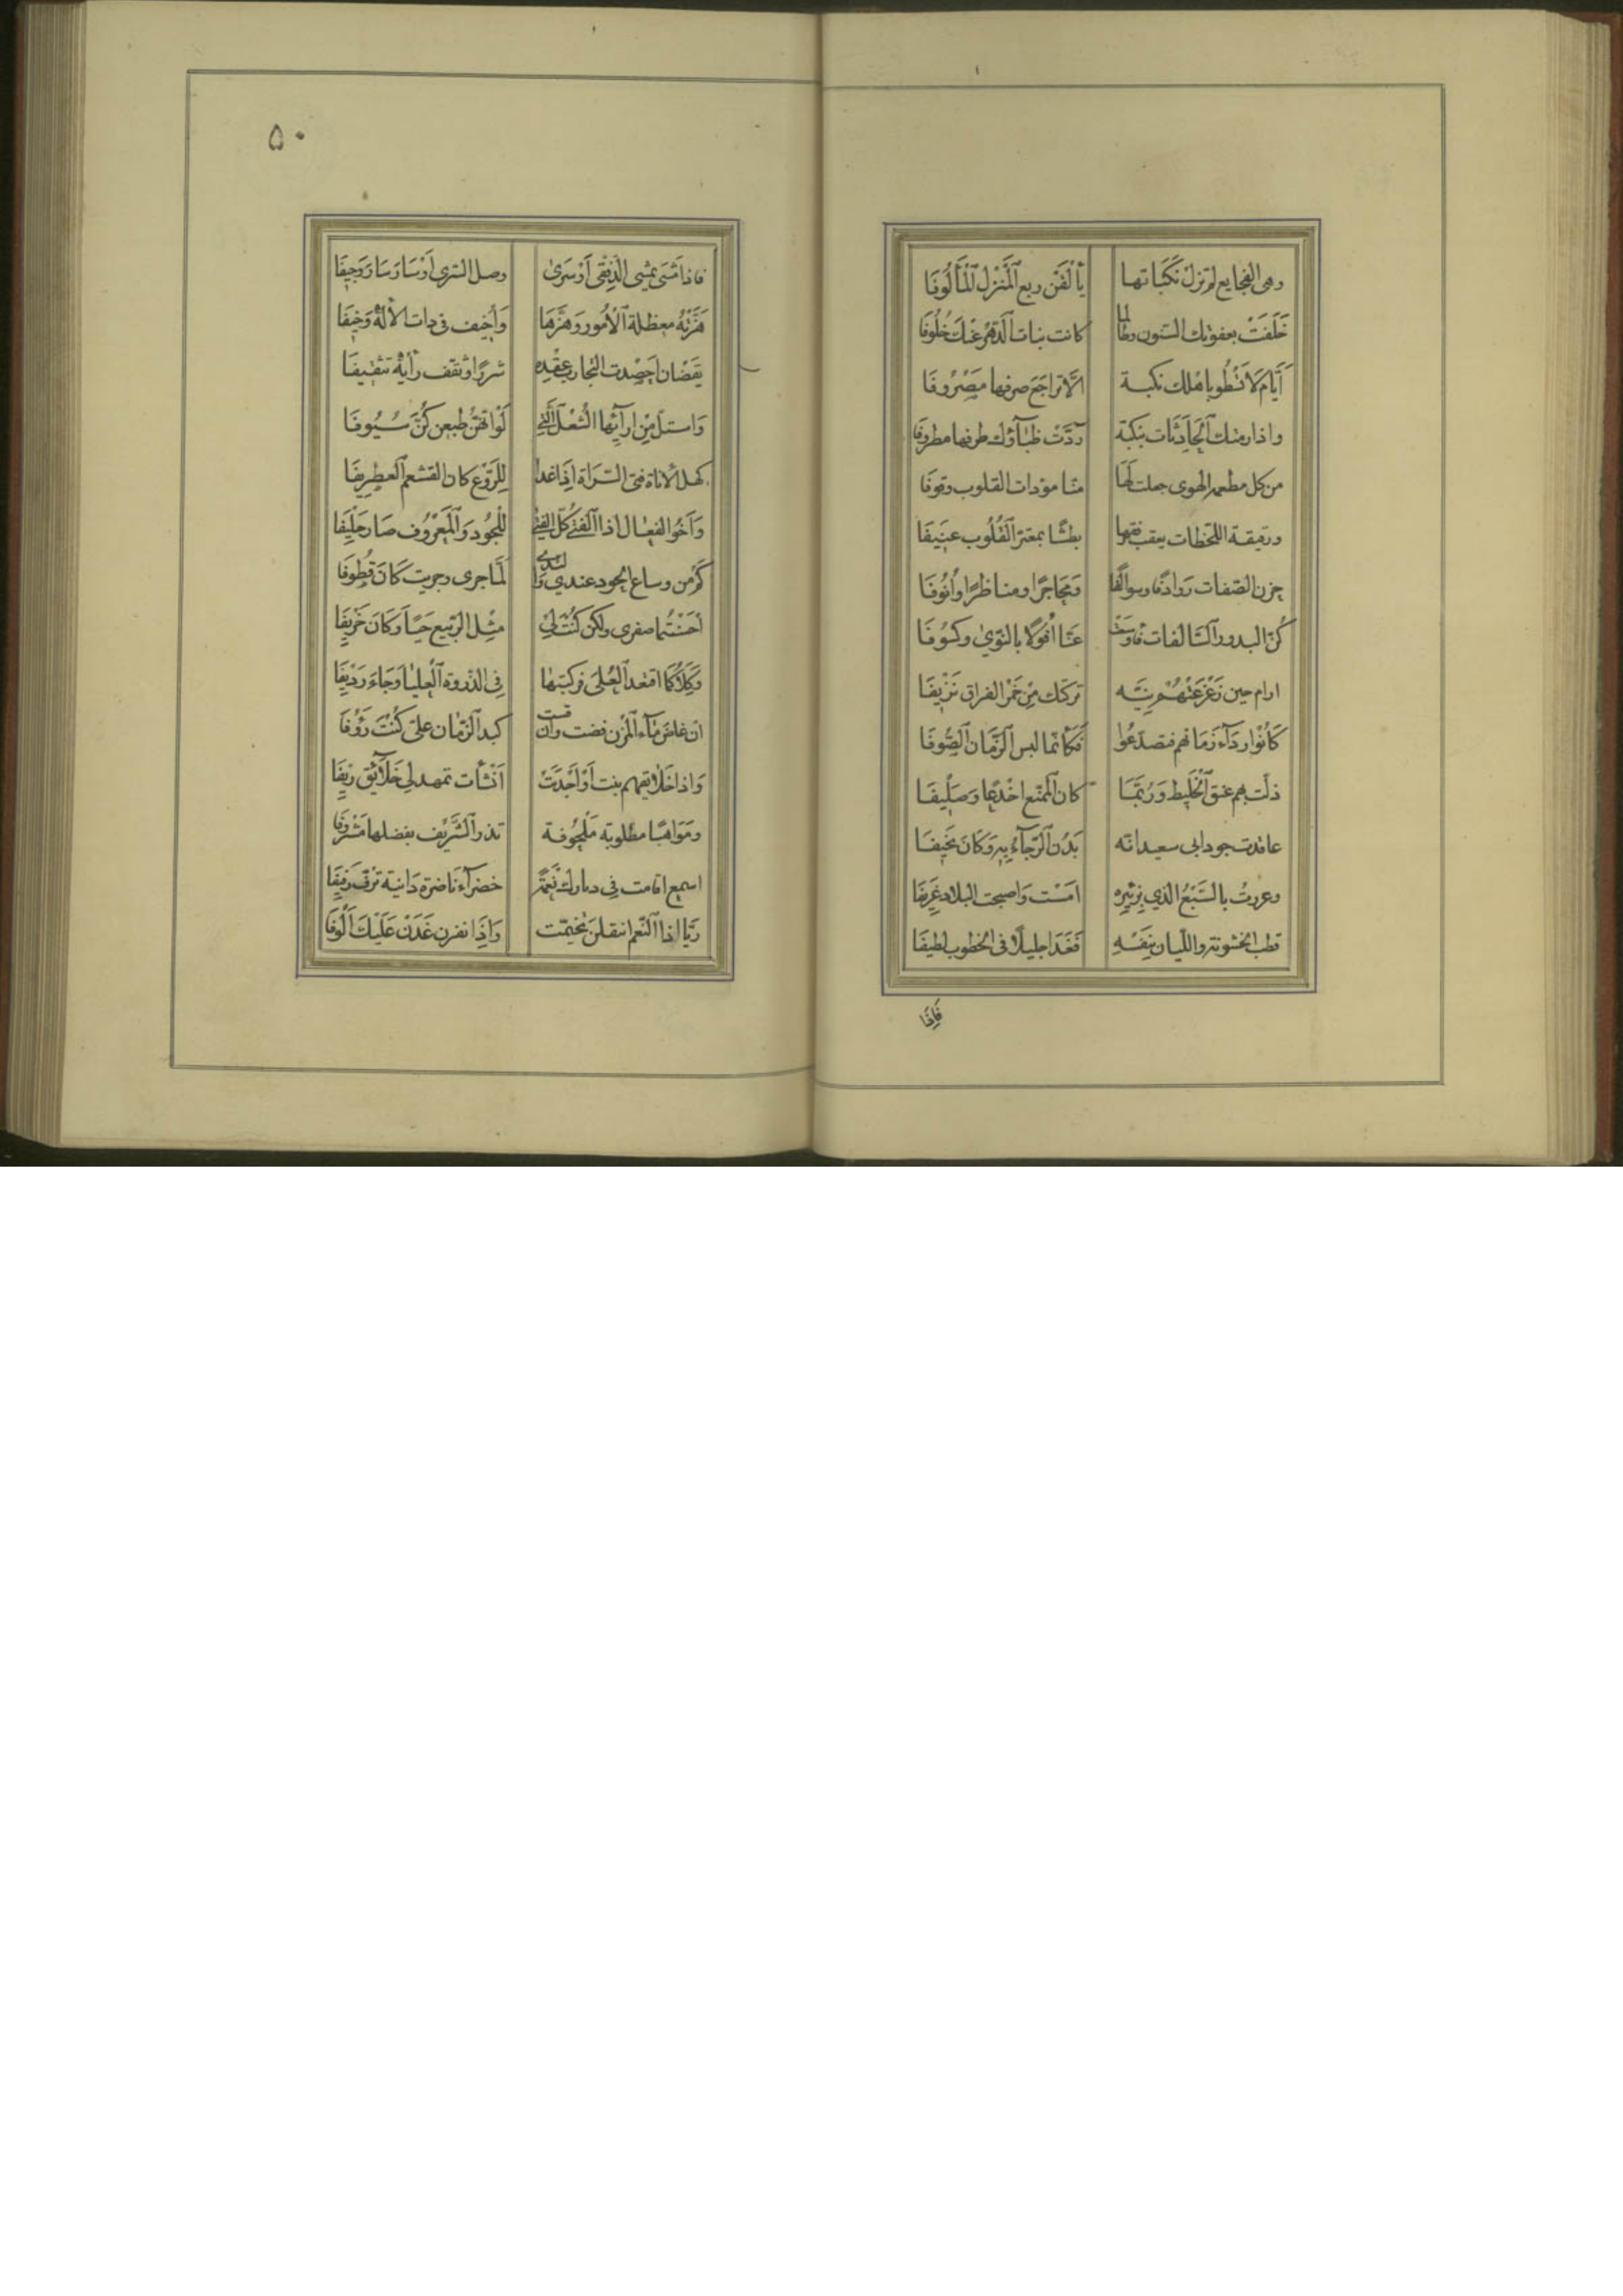 وهى الفجايع لم تزل نكباتها يألفن ربع المنزل المألوفا
خلفت بعفوتك السنون وطالما كانت بنات الدهر عنك خلوفا
أيام لا تسطو باهلك نكبة الا تراجع صرفها مصروفا
واذا رمتك الحادثات بنكبة ردت ظباؤك طرفها مطروفا
من كل مطعمة الهوى جعلت لها منا مودات القلوب وقوفا
ورقيقة اللحظات يعقب رفقها بطشا بمغتر القلوب عنيفا
جزن الصفات روادفا وسوالفا ومحاجرا ومناظرا وأنوفا
كن البدور السالفات فأوسعت عنا أفولا بالنوى وكسوفا
ارام حين زعزعتهم نية تركتك من خمر الفراق نزيفا
كانوا رداء زمانهم فتصدعوا فكأنما لبس الزمان الصوفا
ذلت بهم عنق الخليط وربما كان الممنع اخدعا وصليفا
عاقدت جود ابى سعيد انه بدن الرجاء به وكان نحيفا
وعززت بالسبع الذي بزئيره امست واصبحت البلاد غريفا
قطب الخشونة والليان بنفسه فغدا جليلا فى الخطوب لطيفا
فاذا
٥٠
فاذا مشى يمشى الدفقى أو سرى وصل السرى أو سار سار وجيفا
هزته معظلة الأمور وهزها وأخيف فى ذات الاله وخيفا
يقضان احصدت التجارب عقده شزرا وثقف رأيه تثقيفا
واستل من ارآئها الشعل التي لو انهن طبعن كن سيوفا
كهل الأناة فتى السراة اذا غدا للروع كان القشعم الغطريفا
وأخو الفعال اذا الفتى كل الفتى للجود والمعروف صار حليفا
كم من وساع الجود عندي والندى لما جرى وجريت كان قطوفا
أحسنتما صفرى ولكن كنت لي مثل الربيع حيا وكان خريفا
وكلاكما اقتعد العلى فركبتها فى الذروة العليا وجاء رديفا
ان غاض ماء المزن فضت وان قست كبد الزمان على كنت رؤفا
واذا خلائقهم نبت او اجدبت أنشأت تمهد لى خلائق ريفا
ومواهبا مطلوبة ملحوفة تذر الشريف بفضلها مشروفا
اسمع اقامت فى ديارك نعمة خضرآء ناضرة دانية ترف رفيفا
ريا اذا النعم انتقلن تخيمت واذا نفرن غدت عليك ألوفا